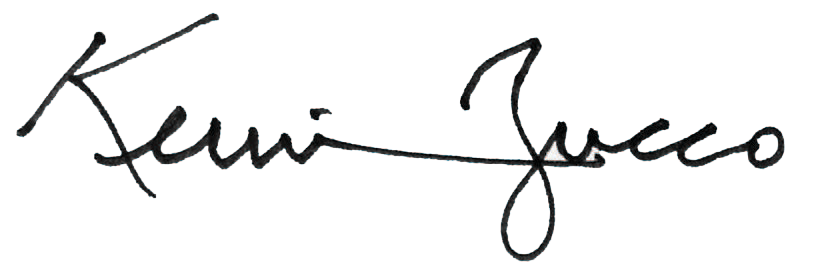 Kevin Zucco